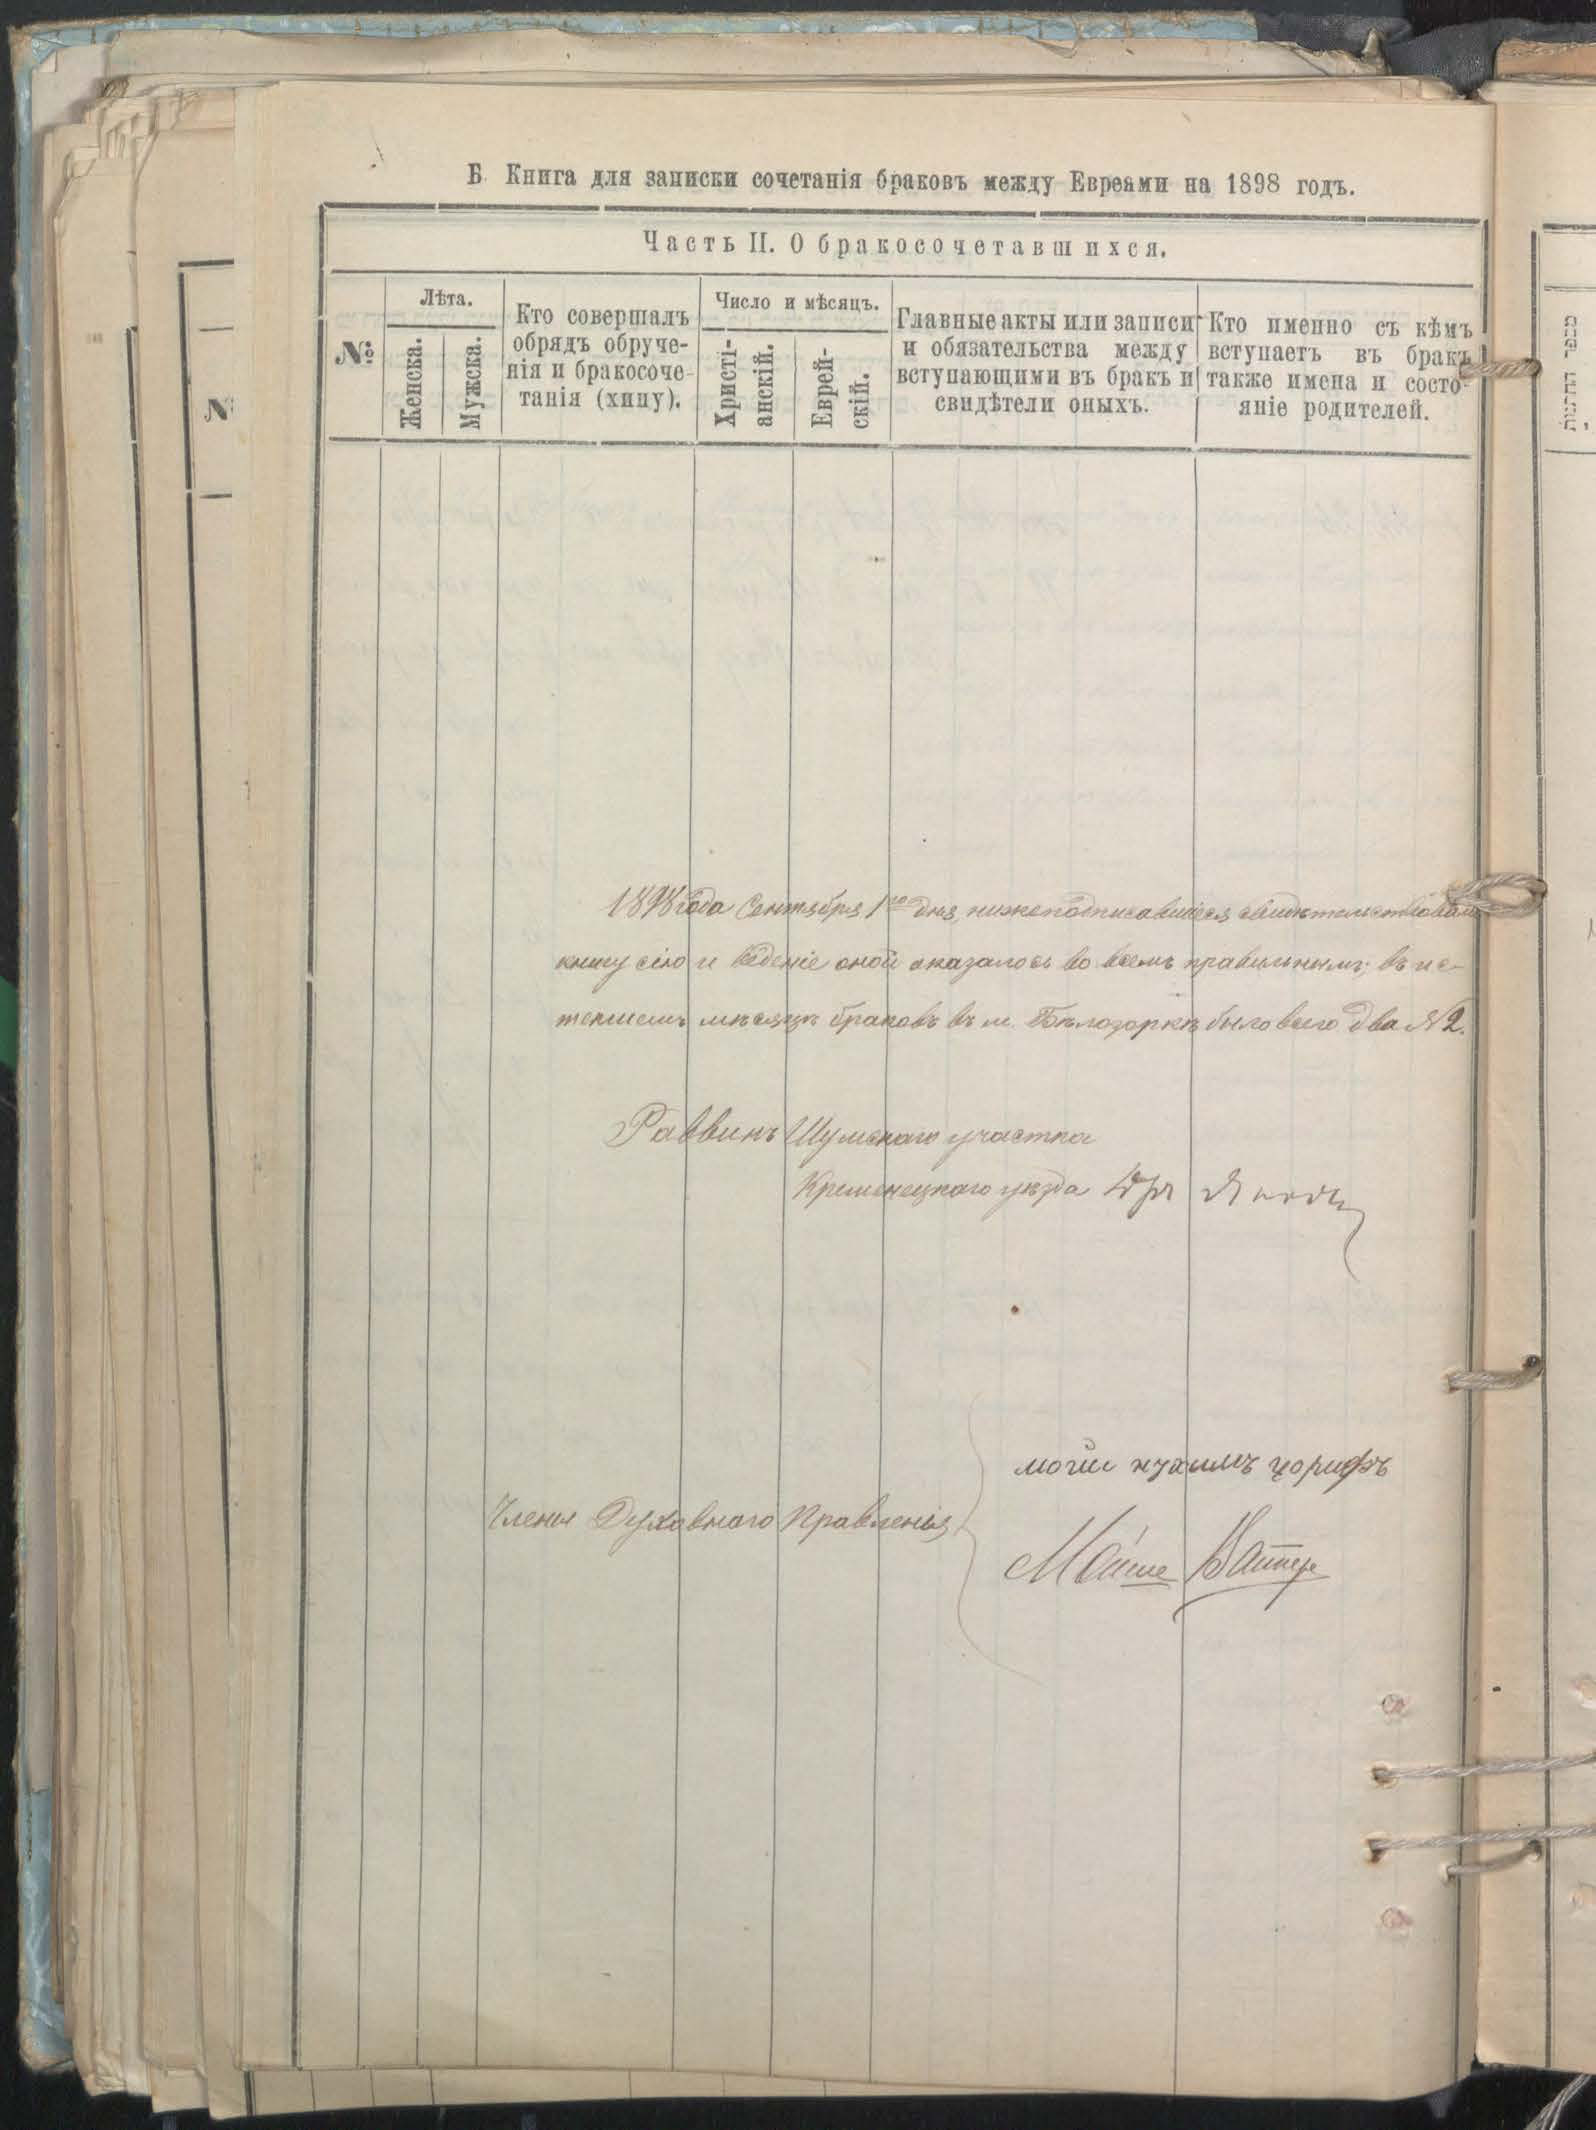 Б. Книга для записки сочетанія браковъ между Евреями на 1898 годъ.
Часть II. О бракосочетавшихся.
№
Лѣта.
Женска.
Мужска.
Кто совершалъ
обрядъ обруче-
нія и бракосоче-
танія (хипу).
Число и мѣсяцъ.
Христі-
анскій.
Еврей-
скій.
Главные акты или записи
и обязательства между
вступающими въ бракъ и
свидѣтели оныхъ.
Кто именно съ кѣмъ
вступаетъ въ бракъ
также имена и состо-
яніе родителей.
1898 года Сентября 1го дня, нижеподписавшіеся свидѣтельствовали
книгу сію и веденіе оной оказалось во всемъ правильнымъ; въ ис-
текшемъ мѣсяцѣ браковъ въ м. Бѣлозоркѣ было всего два №2.
Раввинъ Шумскаго участка
Кременецкаго уѣзда
Члены Духовнаго Правленья
Мойше
№